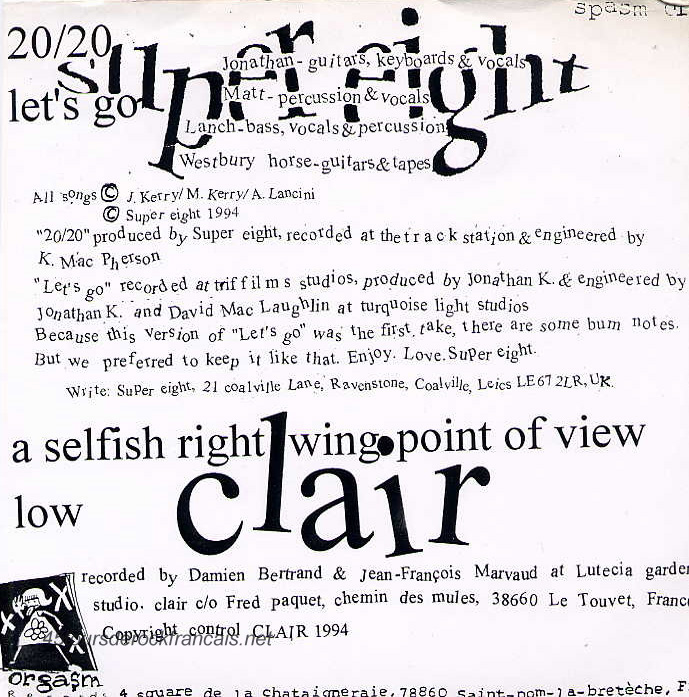 spasm
20/20
super eight
let's go
Jonathan- guitars, keyboards & vocals
Matt- percussion & vocals
Lanch-bass, vocals & percussion
Westbury horse-guitars & tapes
All songs © J. Kerry/ M. Kerry/ A. Lancini
© Super eight 1994
"20/20" produced by Super eight, recorded at the track station & engineered by
K. Mac Pherson
"Let's go" recorded at trif films studios, produced by Jonathan K. & engineered by
Jonathan K. and David Mac Laughlin at turquoise light studios
Because this version of "Let's go" was the first take, there are some bum notes.
But we preferred to keep it like that. Enjoy. Love. Super eight.
Write: Super eight, 21 coalville Lane, Ravenstone, Coalville, Leics LE67 2LR, UK.
a selfish right wing point of view
low
clair
recorded by Damien Bertrand & Jean-François Marvaud at Lutecia garden
studio. clair c/o Fred paquet, chemin des mules, 38660 Le Touvet, France
Copyright control CLAIR 1994
45toursderockfrancais.net
orgasm
4 square de la chataigneraie, 78860 Saint-nom-la-bretèche, F